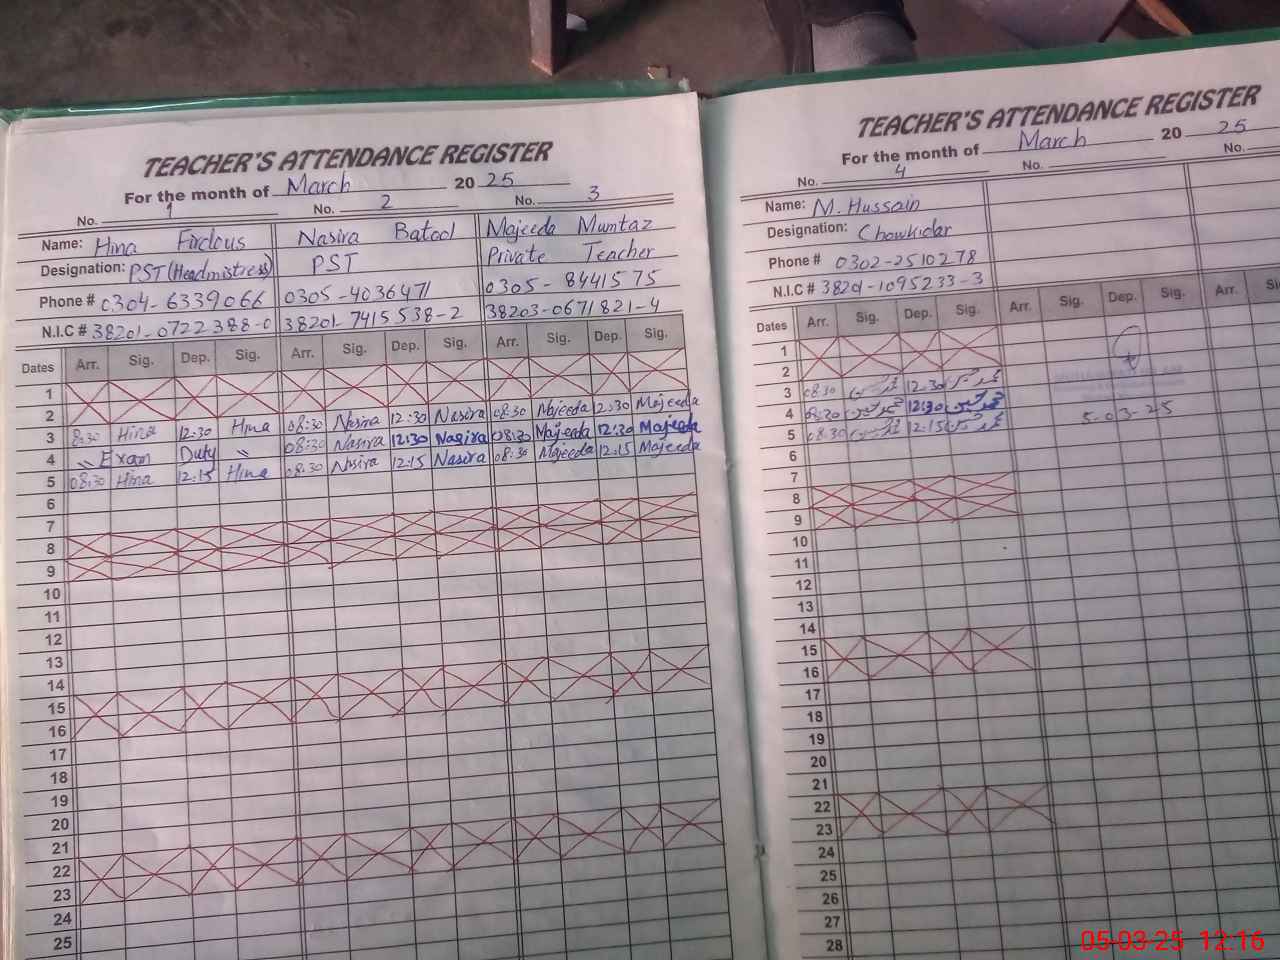 TEACHER'S ATTENDANCE REGISTER
For the month of March 20 25
No. 1 No. 2 No. 3
Name: Hina Firdous Nasira Batool Majeeda Mumtaz
Designation: PST (Headmistress) PST Private Teacher
Phone # 0304-6339066 0305-4036471 0305-8441575
N.I.C # 38201-0722388-0 38201-7415538-2 38203-0671821-4
Dates Arr. Sig. Dep. Sig. Arr. Sig. Dep. Sig. Arr. Sig. Dep. Sig.
1
2
3 8:30 Hina 12:30 Hina 08:30 Nasira 12:30 Nasira 08:30 Majeeda 12:30 Majeeda
4 " Exam Duty " 08:30 Nasira 12:30 Nasira 08:30 Majeeda 12:30 Majeeda
5 08:30 Hina 12:15 Hina 08:30 Nasira 12:15 Nasira 08:30 Majeeda 12:15 Majeeda
6
7
8
9
10
11
12
13
14
15
16
17
18
19
20
21
22
23
24
25
TEACHER'S ATTENDANCE REGISTER
For the month of March 20 25
No. 4 No. No.
Name: M. Hussain
Designation: Chowkidar
Phone # 0302-2510278
N.I.C # 38201-1095233-3
Dates Arr. Sig. Dep. Sig. Arr. Sig. Dep. Sig. Arr.
1
2
3 08:30 12:30
4 08:30 12:30
5 08:30 12:15
5-03-25
6
7
8
9
10
11
12
13
14
15
16
17
18
19
20
21
22
23
24
25
26
27
28
05-03-25 12:16